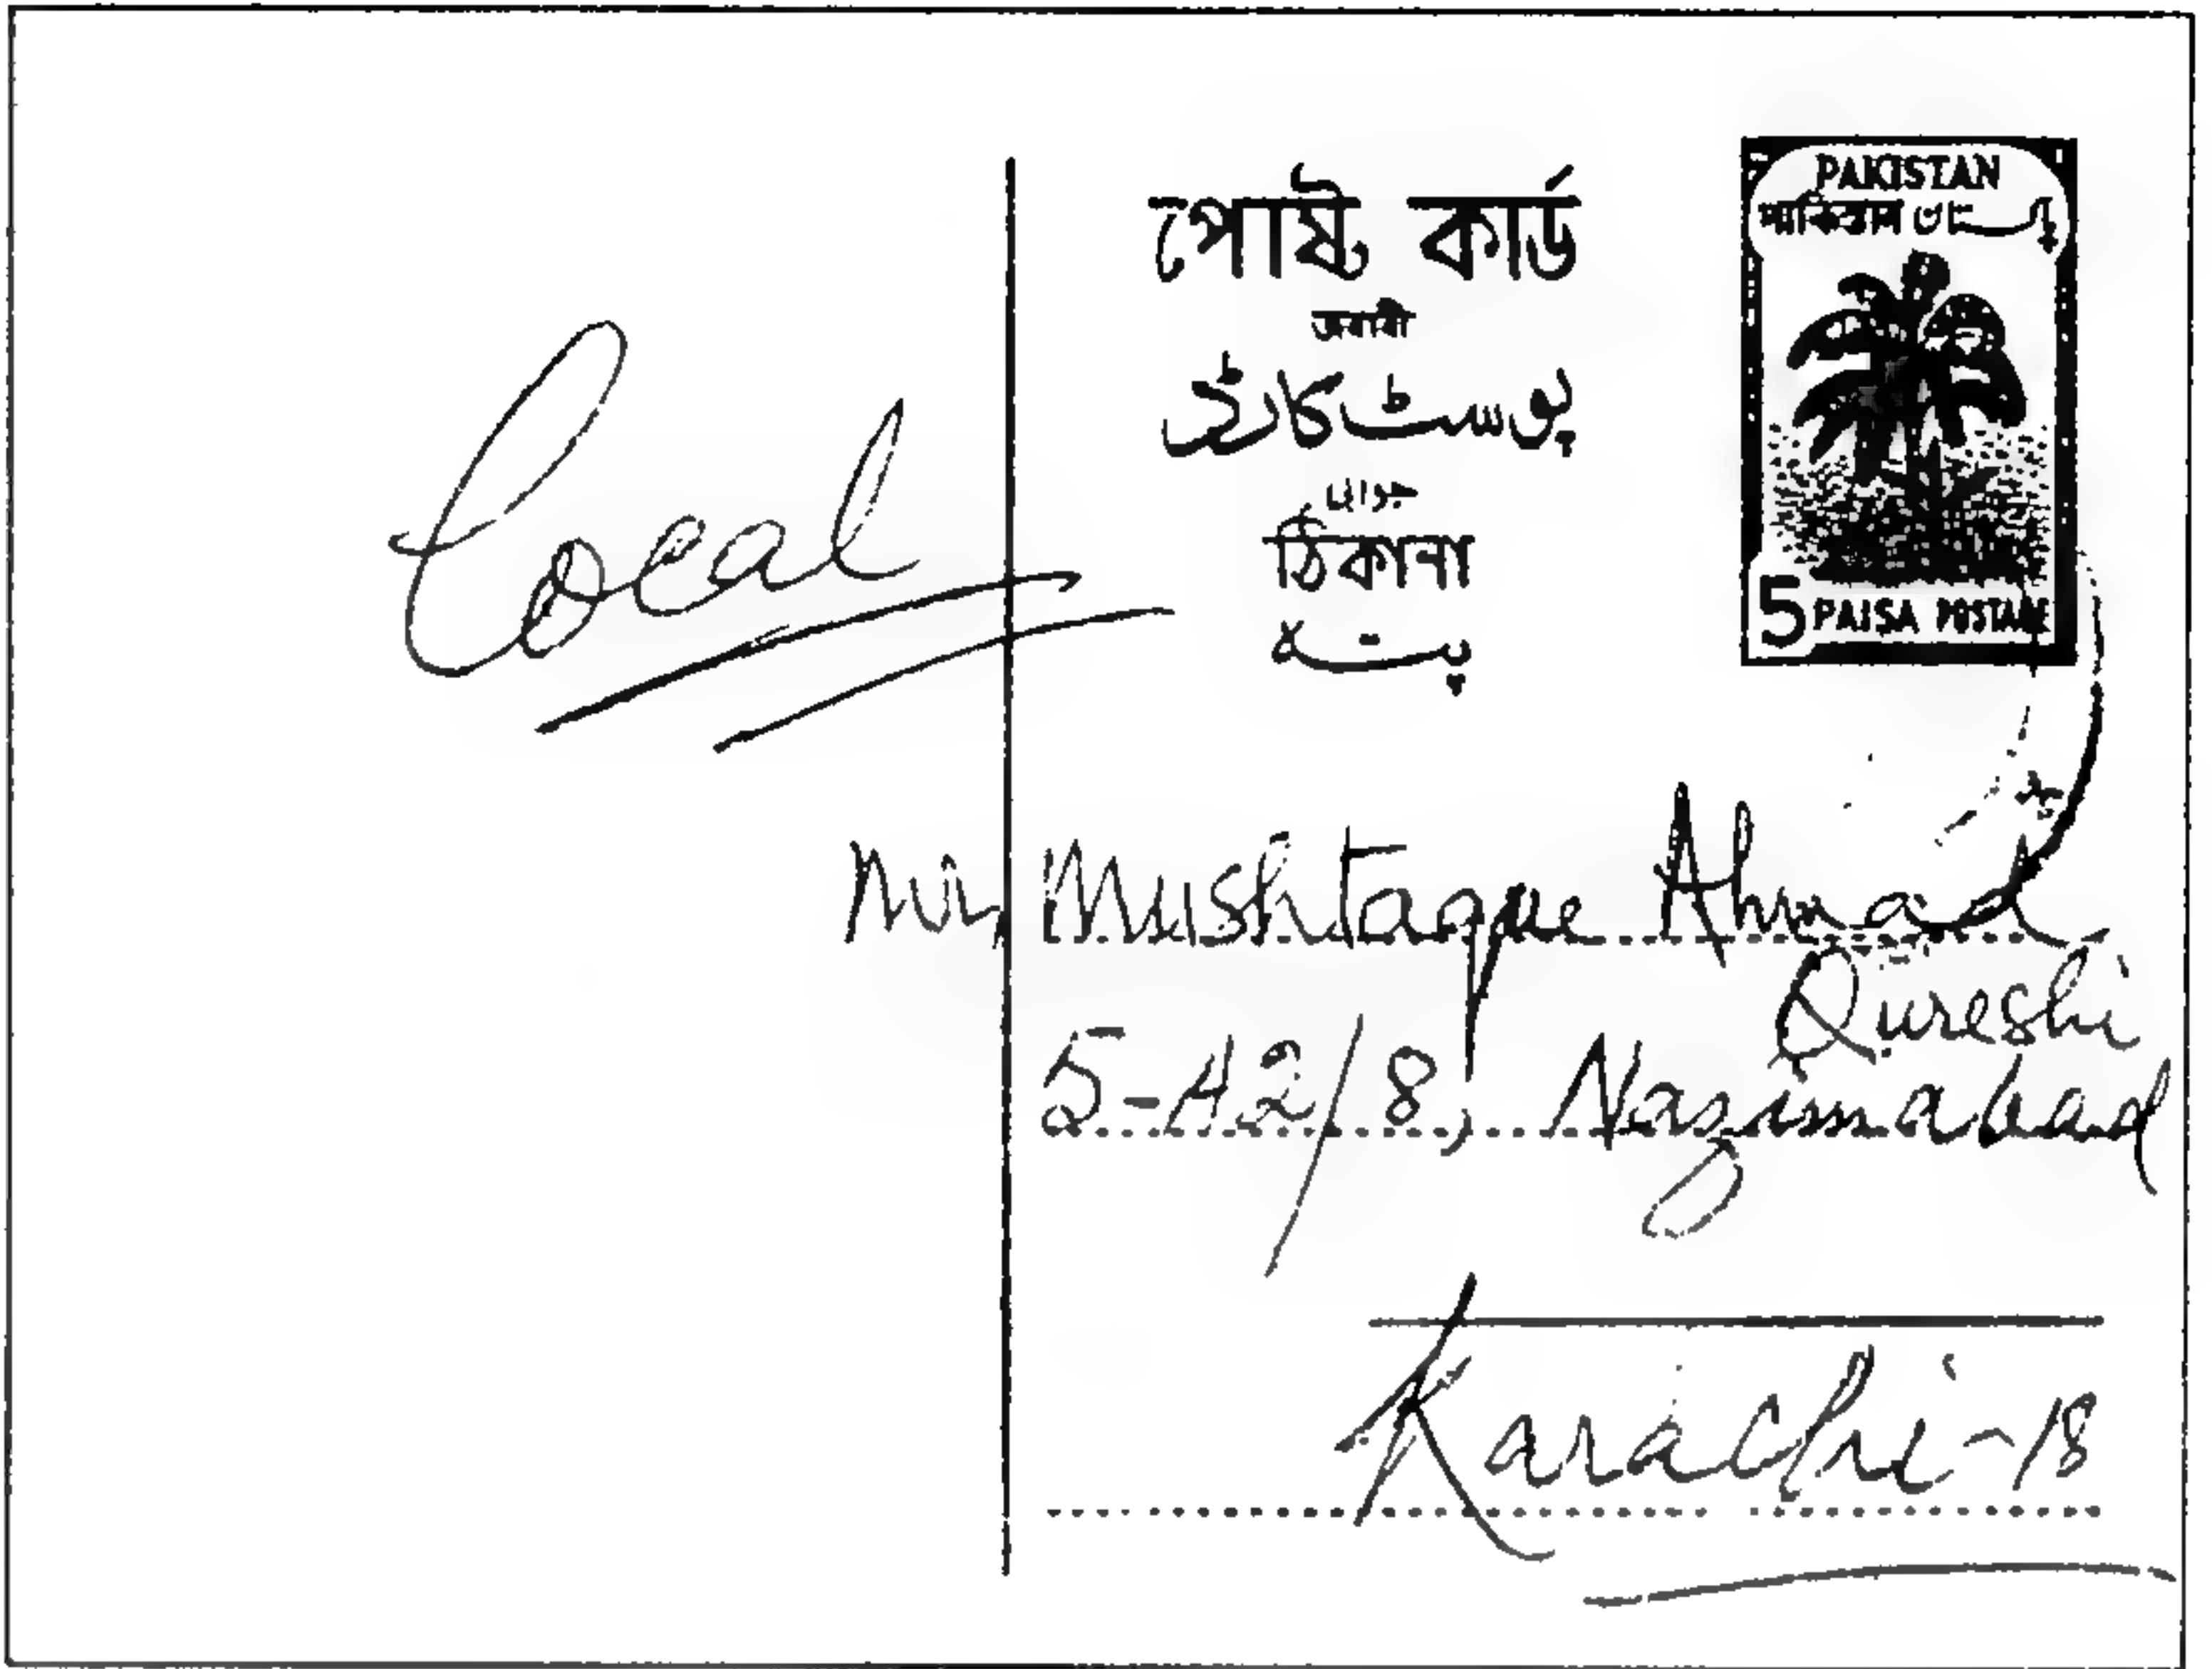 Local
পোষ্ট কার্ড
জবাবী
پوسٹ کارڈ
جوابی
ঠিকানা
پتہ
PAKISTAN
পাকিস্তান پاکستان
5 PAISA POSTAGE
Mr, Mushtaque Ahmad
Qureshi
5-A2/8, Nazimabad
Karachi-18